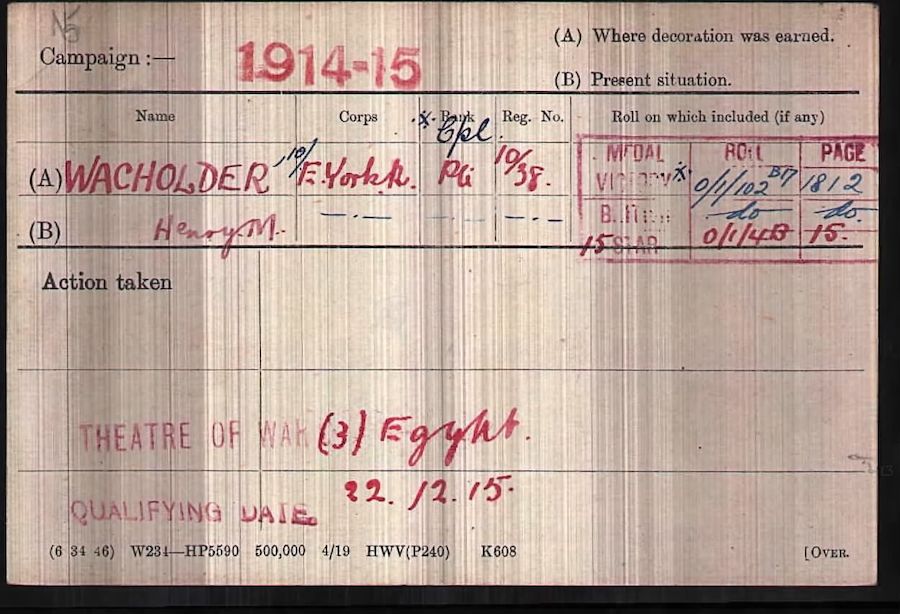 Campaign :— 1914-15 (A) Where decoration was earned.
(B) Present situation.
Name Corps x. Rank Reg. No. Roll on which included (if any)
Cpl.
(A) WACHOLDER 10/ E. York. R. Pte 10/38. MEDAL ROLL PAGE
VICTORY x 0/1/102 B17 1812
(B) Henry M. —·— —·— —·— BRITISH do do.
15 STAR 0/1/4B 15.
Action taken
THEATRE OF WAR (3) Egypt.
QUALIFYING DATE. 22.12.15.
(6 34 46) W234—HP5590 500,000 4/19 HWV(P240) K608 [OVER.